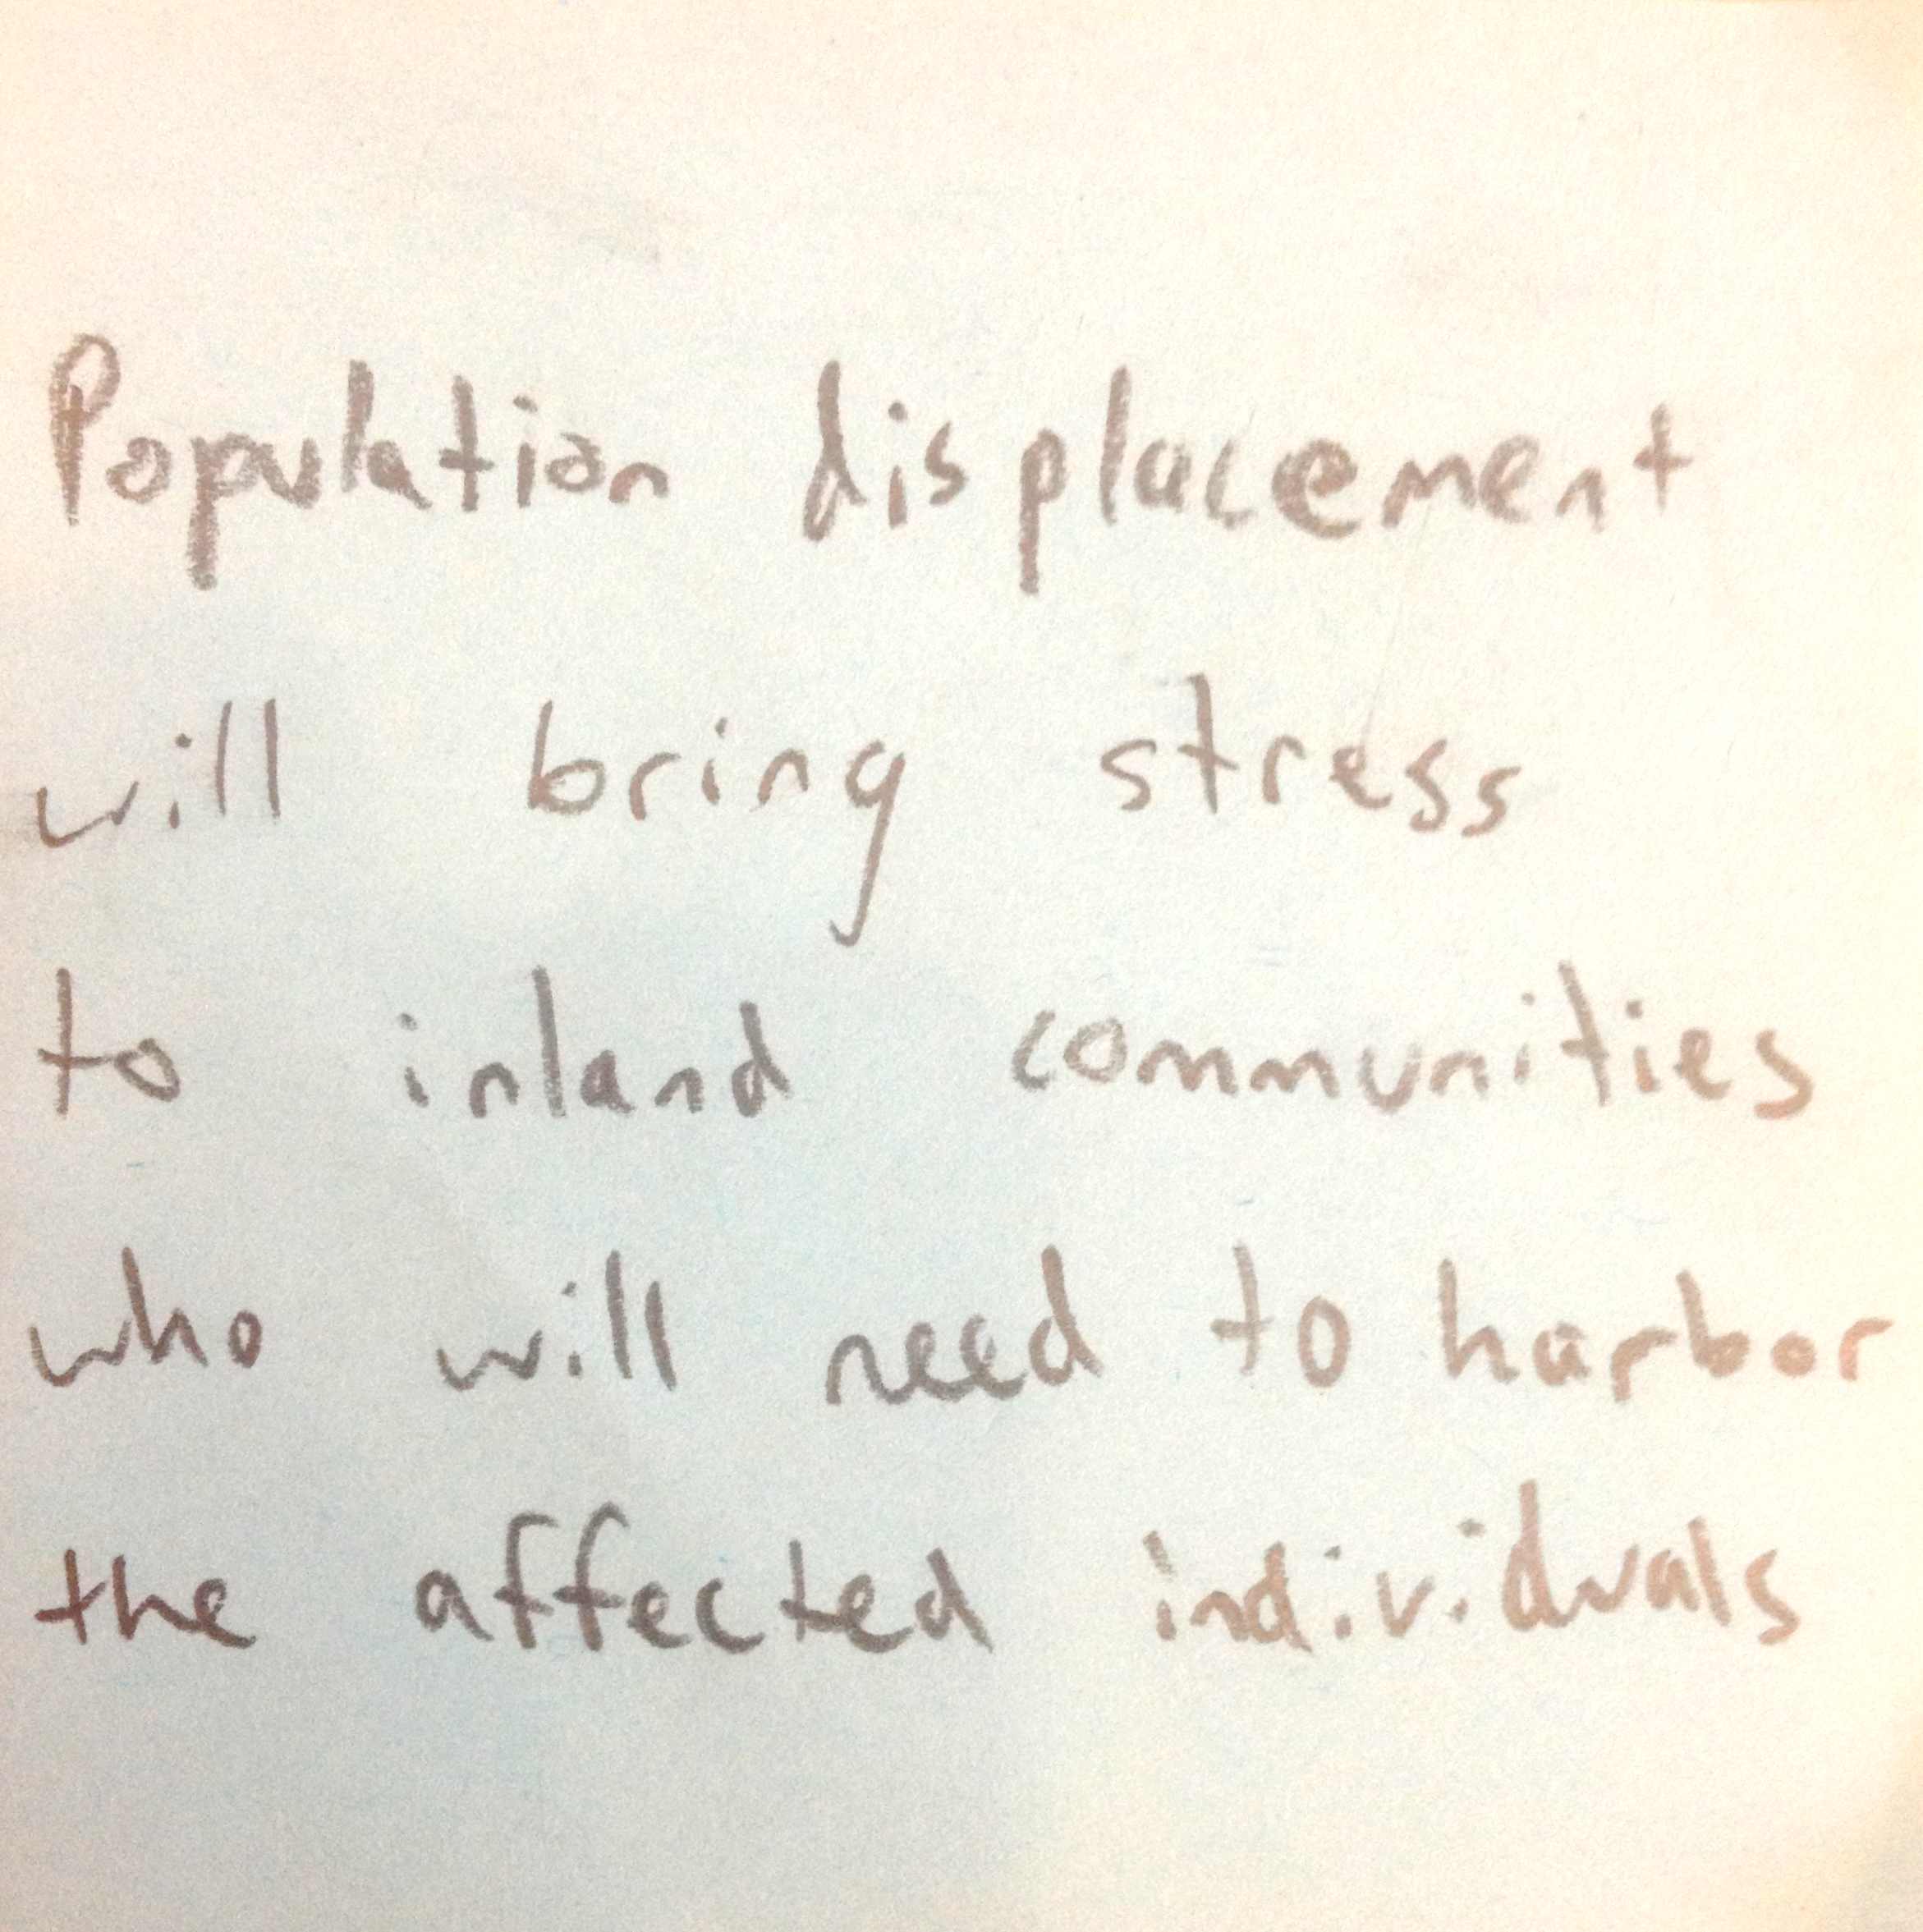 Population displacement
will bring stress
to inland communities
who will need to harbor
the affected individuals